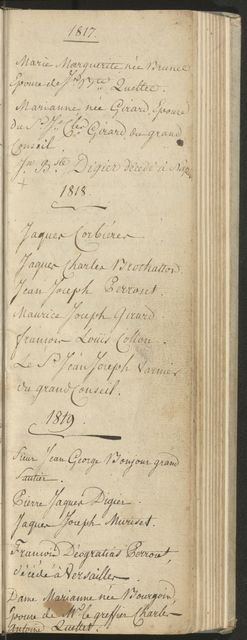 1817.
Marie Marguerite née Brunel
Epouse de Jn Bte Quellet.
Marianne née Girard Epouse
du Sr Jn Cles Girard du grand
Conseil.
Jn Bste Digier décédé à
1818
Jaques Corbiéres.
Jaques Charles Brochatton
Jean Joseph Perrout.
Maurice Joseph Girard
francois Louïs Collon.
Le Sr Jean Joseph Varnier
du grand Conseil.
1819.
Sieur Jean George Bonjour grand
Sautier.
Pierre Jaques Digier.
Jaques Joseph Muriset.
Francois Déogratias Perrout,
décédé à Versailles
Dame Marianne née Bourgoin,
Epouse de Mr le greffier Charles
Antoine Quellet.